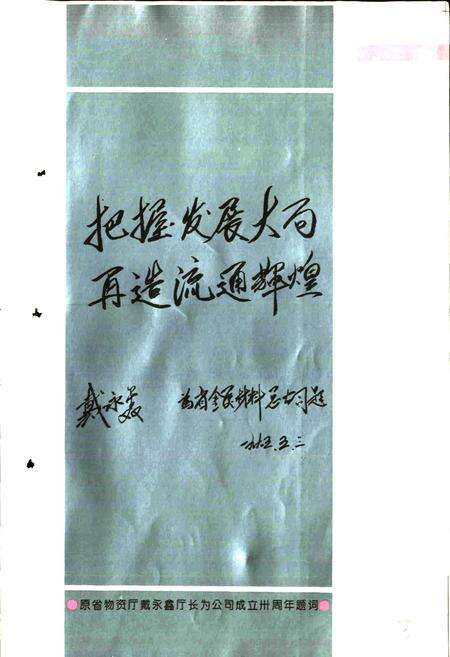 把握发展大局
再造流通辉煌
戴永鑫 为省金属材料总公司题
一九九五、五、二
原省物资厅戴永鑫厅长为公司成立卅周年题词